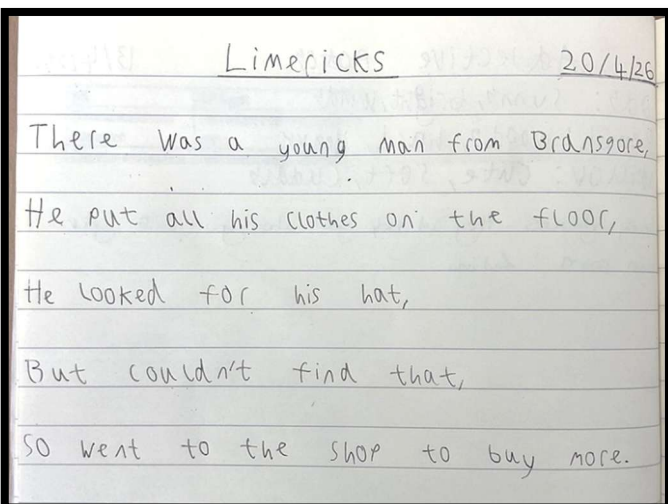 Limericks 20/4/26
There was a young man from Bransgore,
He put all his clothes on the floor,
He looked for his hat,
But couldn't find that,
So went to the shop to buy more.